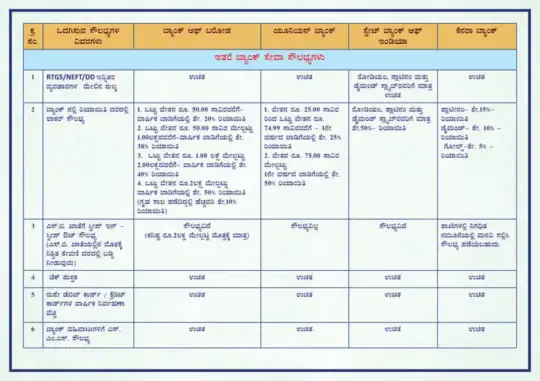 ಕ್ರ. ಸಂ.
ಒದಗಿಸುವ ಸೌಲಭ್ಯಗಳ ವಿವರಗಳು
ಬ್ಯಾಂಕ್ ಆಫ್ ಬರೋಡ
ಯೂನಿಯನ್ ಬ್ಯಾಂಕ್
ಸ್ಟೇಟ್ ಬ್ಯಾಂಕ್ ಆಫ್ ಇಂಡಿಯಾ
ಕೆನರಾ ಬ್ಯಾಂಕ್
ಇತರೆ ಬ್ಯಾಂಕ್ ಸೇವಾ ಸೌಲಭ್ಯಗಳು
1
RTGS/NEFT/DD ಇನ್ನಿತರ
ವ್ಯವಹಾರಗಳ ಮೇಲಿನ ಶುಲ್ಕ
ಉಚಿತ
ಉಚಿತ
ರೋಡಿಯಂ, ಪ್ಲಾಟಿನಂ ಮತ್ತು
ಡೈಮಂಡ್ ಸ್ಲ್ಯಾಬ್‌ರವರಿಗೆ ಮಾತ್ರ
ಉಚಿತ
ಉಚಿತ
2
ಬ್ಯಾಂಕ್ ನಲ್ಲಿ ರಿಯಾಯಿತಿ ದರದಲ್ಲಿ
ಲಾಕರ್ ಸೌಲಭ್ಯ
1. ಒಟ್ಟು ವೇತನ ರೂ. 50.00 ಸಾವಿರದವರೆಗೆ-
ವಾರ್ಷಿಕ ಬಾಡಿಗೆಯಲ್ಲಿ ಶೇ. 20% ರಿಯಾಯಿತಿ
2. ಒಟ್ಟು ವೇತನ ರೂ. 50.00 ಸಾವಿರ ಮೇಲ್ಪಟ್ಟು
1.00ಲಕ್ಷದವರೆಗೆ-ವಾರ್ಷಿಕ ಬಾಡಿಗೆಯಲ್ಲಿ ಶೇ.
30% ರಿಯಾಯಿತಿ
3. ಒಟ್ಟು ವೇತನ ರೂ. 1.00 ಲಕ್ಷ ಮೇಲ್ಪಟ್ಟು
2.00ಲಕ್ಷದವರೆಗೆ- ವಾರ್ಷಿಕ ಬಾಡಿಗೆಯಲ್ಲಿ ಶೇ.
40% ರಿಯಾಯಿತಿ
4. ಒಟ್ಟು ವೇತನ ರೂ.2ಲಕ್ಷ ಮೇಲ್ಪಟ್ಟು
ವಾರ್ಷಿಕ ಬಾಡಿಗೆಯಲ್ಲಿ ಶೇ. 50% ರಿಯಾಯಿತಿ
(ಗೃಹ ಸಾಲ ಪಡೆದಿದ್ದಲ್ಲಿ ಹೆಚ್ಚುವರಿ ಶೇ.10%
ರಿಯಾಯಿತಿ)
1. ವೇತನ ರೂ. 25.00 ಸಾವಿರ
ರಿಂದ ಒಟ್ಟು ವೇತನ ರೂ.
74.99 ಸಾವಿರದವರೆಗೆ - 1ನೇ
ವರ್ಷದ ಬಾಡಿಗೆಯಲ್ಲಿ ಶೇ. 25%
ರಿಯಾಯಿತಿ
2. ವೇತನ ರೂ. 75.00 ಸಾವಿರ
ಮೇಲ್ಪಟ್ಟು
1ನೇ ವರ್ಷದ ಬಾಡಿಗೆಯಲ್ಲಿ ಶೇ.
50% ರಿಯಾಯಿತಿ
ರೋಡಿಯಂ, ಪ್ಲಾಟಿನಂ ಮತ್ತು
ಡೈಮಂಡ್ ಸ್ಲ್ಯಾಬ್‌ರವರಿಗೆ ಮಾತ್ರ
ಶೇ.50%- ರಿಯಾಯಿತಿ
ಪ್ಲಾಟಿನಂ- ಶೇ.15%-
ರಿಯಾಯಿತಿ
ಡೈಮಂಡ್- ಶೇ. 10% -
ರಿಯಾಯಿತಿ
ಗೋಲ್ಡ್ -ಶೇ. 5% -
ರಿಯಾಯಿತಿ
3
ಎಸ್.ಬಿ. ಖಾತೆಗೆ ಸ್ವೀಪ್ ಇನ್ -
ಸ್ವೀಪ್ ಔಟ್ ಸೌಲಭ್ಯ
(ಎಸ್.ಬಿ. ಖಾತೆಯಲ್ಲಿನ ಮೊತಕ್ಕೆ
ನಿಶ್ಚಿತ ಠೇವಣಿ ದರದಲ್ಲಿ ಬಡ್ಡಿ
ನೀಡುವುದು)
ಸೌಲಭ್ಯವಿದೆ
(ಕನಿಷ್ಠ ರೂ.2ಲಕ್ಷ ಮೇಲ್ಪಟ್ಟ ಮೊತ್ತಕ್ಕೆ ಮಾತ್ರ)
ಸೌಲಭ್ಯವಿಲ್ಲ
ಸೌಲಭ್ಯವಿದೆ
ಶಾಖೆಗಳಲ್ಲಿ ನಿಗಧಿತ
ನಮೂನೆಯಲ್ಲಿ ಮನವಿ ಸಲ್ಲಿಸಿ
ಸೌಲಭ್ಯ ಪಡೆಯಬಹುದು.
4
ಚೆಕ್ ಪುಸ್ತಕ
ಉಚಿತ
ಉಚಿತ
ಉಚಿತ
ಉಚಿತ
5
ರುಪೇ ಡೆಬಿಟ್ ಕಾರ್ಡ್ / ಕ್ರೆಡಿಟ್
ಕಾರ್ಡ್‌ಗಳ ವಾರ್ಷಿಕ ನಿರ್ವಹಣಾ
ವೆಚ್ಚ
ಉಚಿತ
ಉಚಿತ
ಉಚಿತ
ಉಚಿತ
6
ಬ್ಯಾಂಕ್ ವಹಿವಾಟುಗಳಿಗೆ ಎಸ್.
ಎಂ.ಎಸ್. ಸೌಲಭ್ಯ
ಉಚಿತ
ಉಚಿತ
ಉಚಿತ
ಉಚಿತ